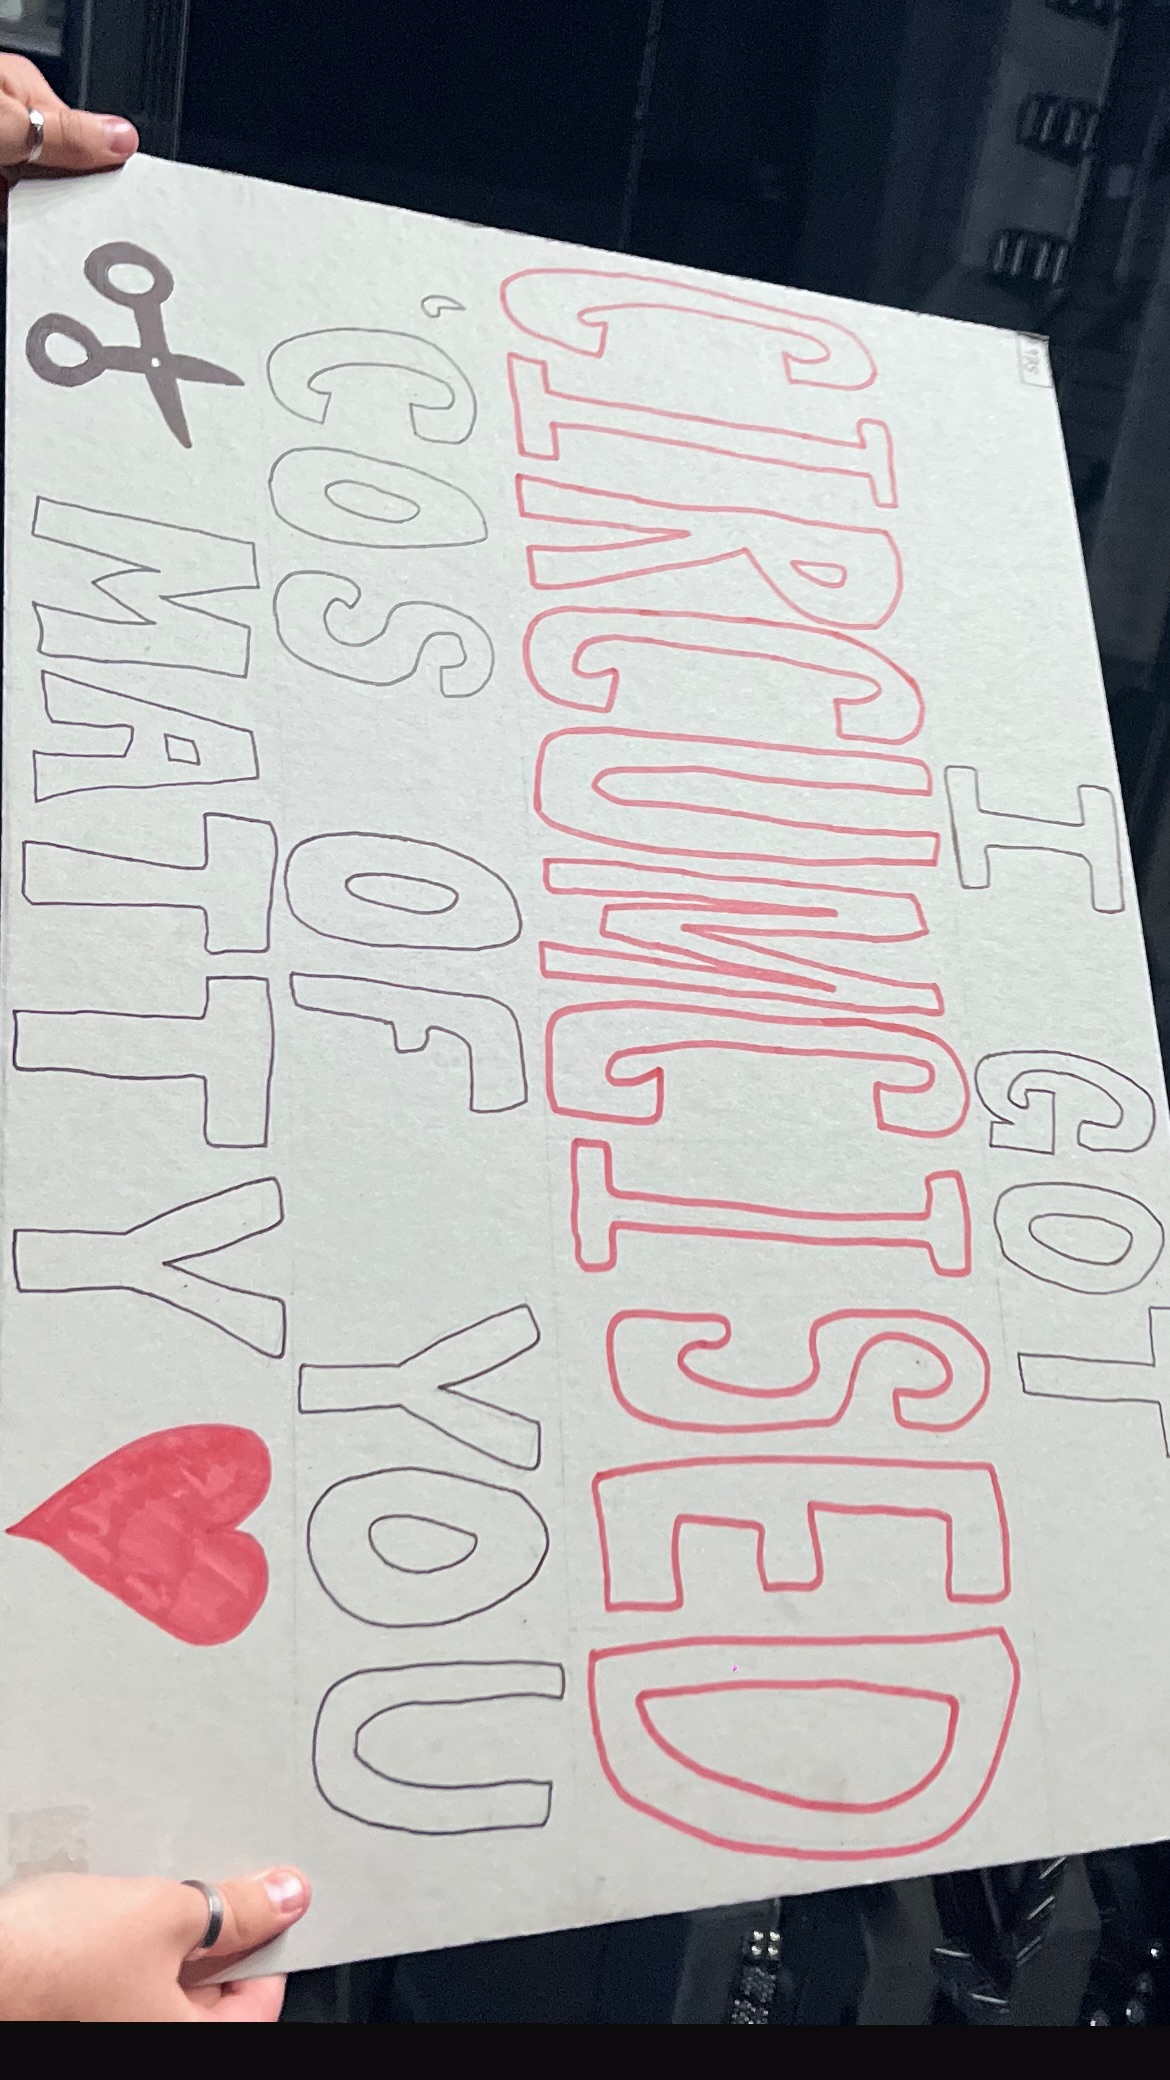 I GOT
CIRCUMCISED
'COS OF YOU
MATTY